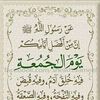 عَنْ رَسُولِ اللَّهِ ﷺ
إِنَّ مِنْ أَفْضَلِ أَيَّامِكُمْ
يَوْمَ الْجُمُعَةِ
فِيهِ خُلِقَ آدَمُ، وَفِيهِ قُبِضَ
وَفِيهِ النَّفْخَةُ، وَفِيهِ الصَّعْقَةُ